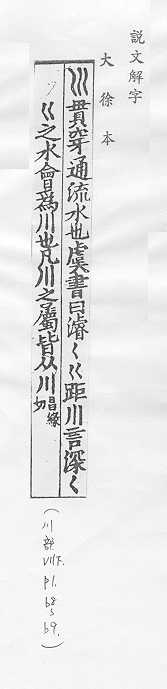 説文解字
大徐本
巛貫穿通流水也虞書曰濬く巜距川言深く
巜之水會爲川也凡川之屬皆从川昌緣切
(川部
VII下.
P1.
b8
b9.)